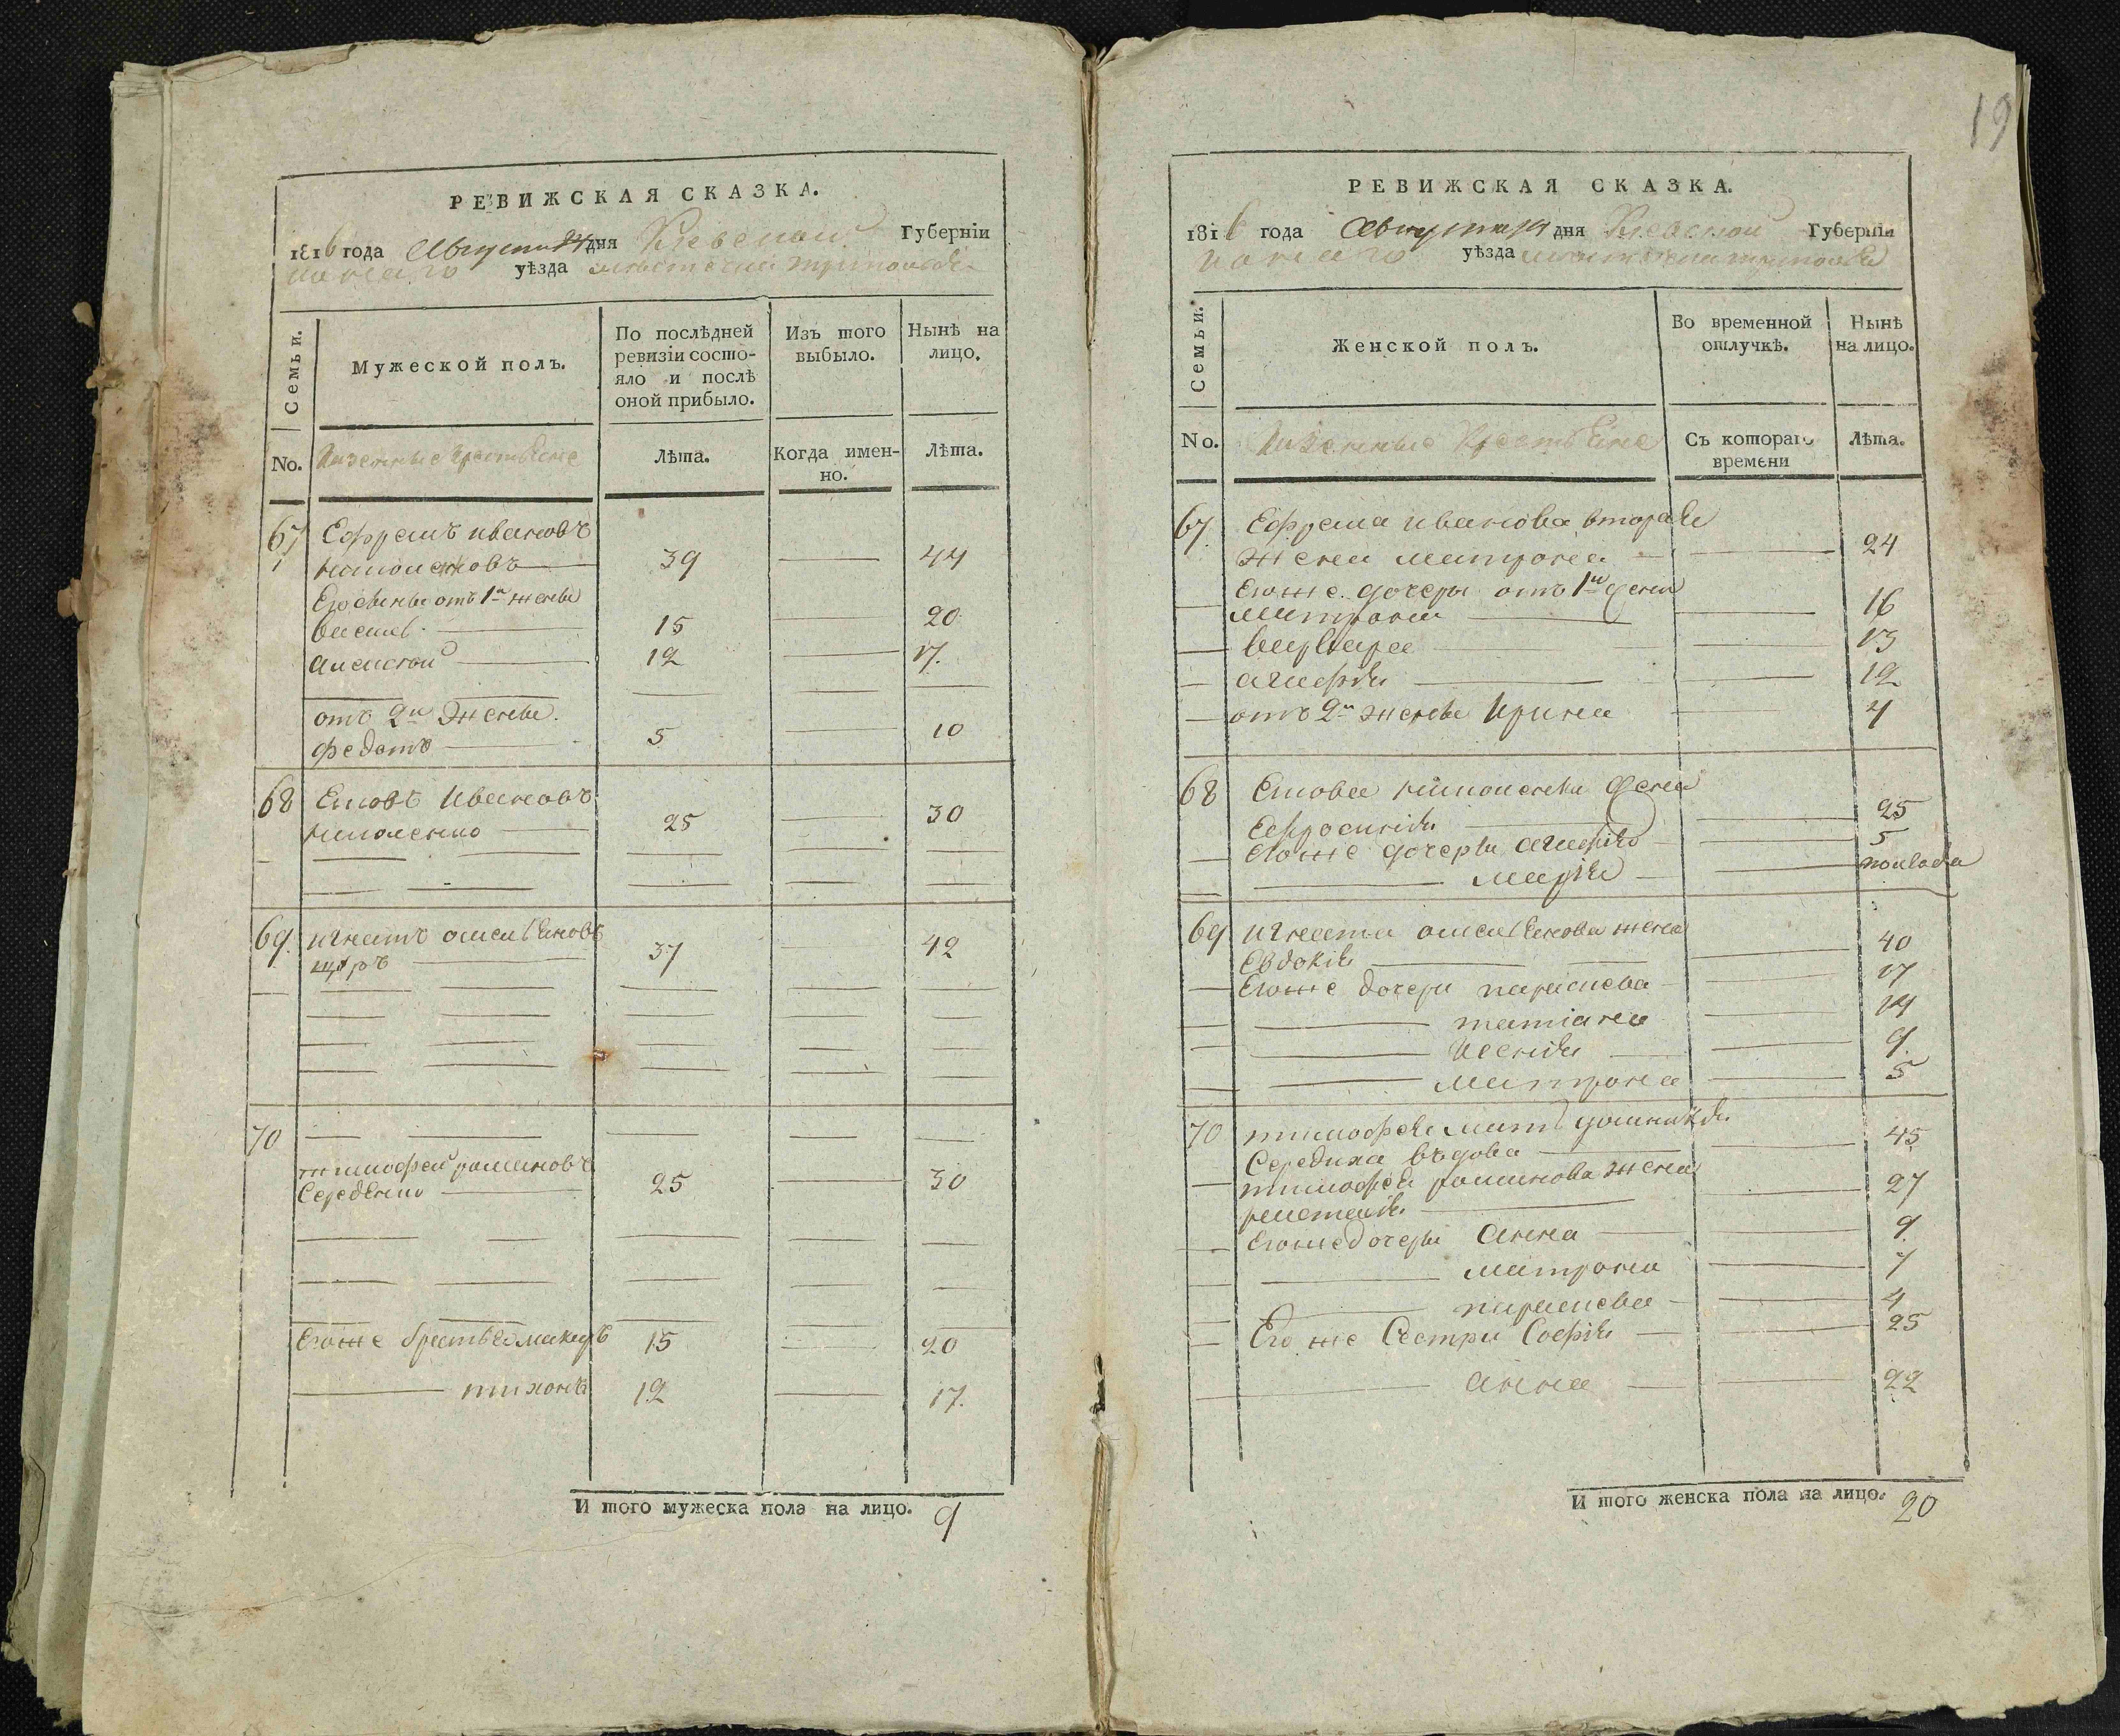 19
РЕВИЖСКАЯ СКАЗКА.
1816 года Августа 24 дня Киевской Губерніи
уѣзда
Семьи.
Мужеской полъ.
По послѣдней ревизіи состояло и послѣ оной прибыло.
Изъ того выбыло.
Нынѣ на лицо.
No. Казенные Крестьяне
Лѣта.
Когда именно.
Лѣта.
67 Ефремъ ивановъ
39 44
Его сыны отъ 1й жены
василь 15 20
алексѣй 12 17.
отъ 2й жены.
федотъ 5 10
68 Ивановъ
25 30
69 игнатъ
37 42
70
тимофей романовъ
Середенко 25 30
Егоже братья макаръ 15 20
тихонъ 12 17.
И того мужеска пола на лицо. 9
РЕВИЖСКАЯ СКАЗКА.
1816 года Августа дня Киевской Губерніи
уѣзда
Семьи.
Женской полъ.
Во временной отлучкѣ.
Нынѣ на лицо.
No. Казенные Крестьяне
Съ котораго времени
Лѣта.
67. Ефрема иванова вторая
жена матрона 24
Егоже дочеры отъ 1й жены
матрона 16
варвара 13
агафія 12
отъ 2й жены Ирина 4
68 жена
Ефросинія 25
Егоже дочеры агафія 5
марія полгода
69 игната жена
Евдокія 40
Егоже дочери параскева 17
татіана 14
Ксенія 9.
матрона 5
70 тимофея мать
Середиха вдова 45
тимофея романова жена
27
Егоже дочеры анна 9
матрона 7
параскева 4
Его же Сестры Софія 25
анна 22
И того женска пола на лицо. 20